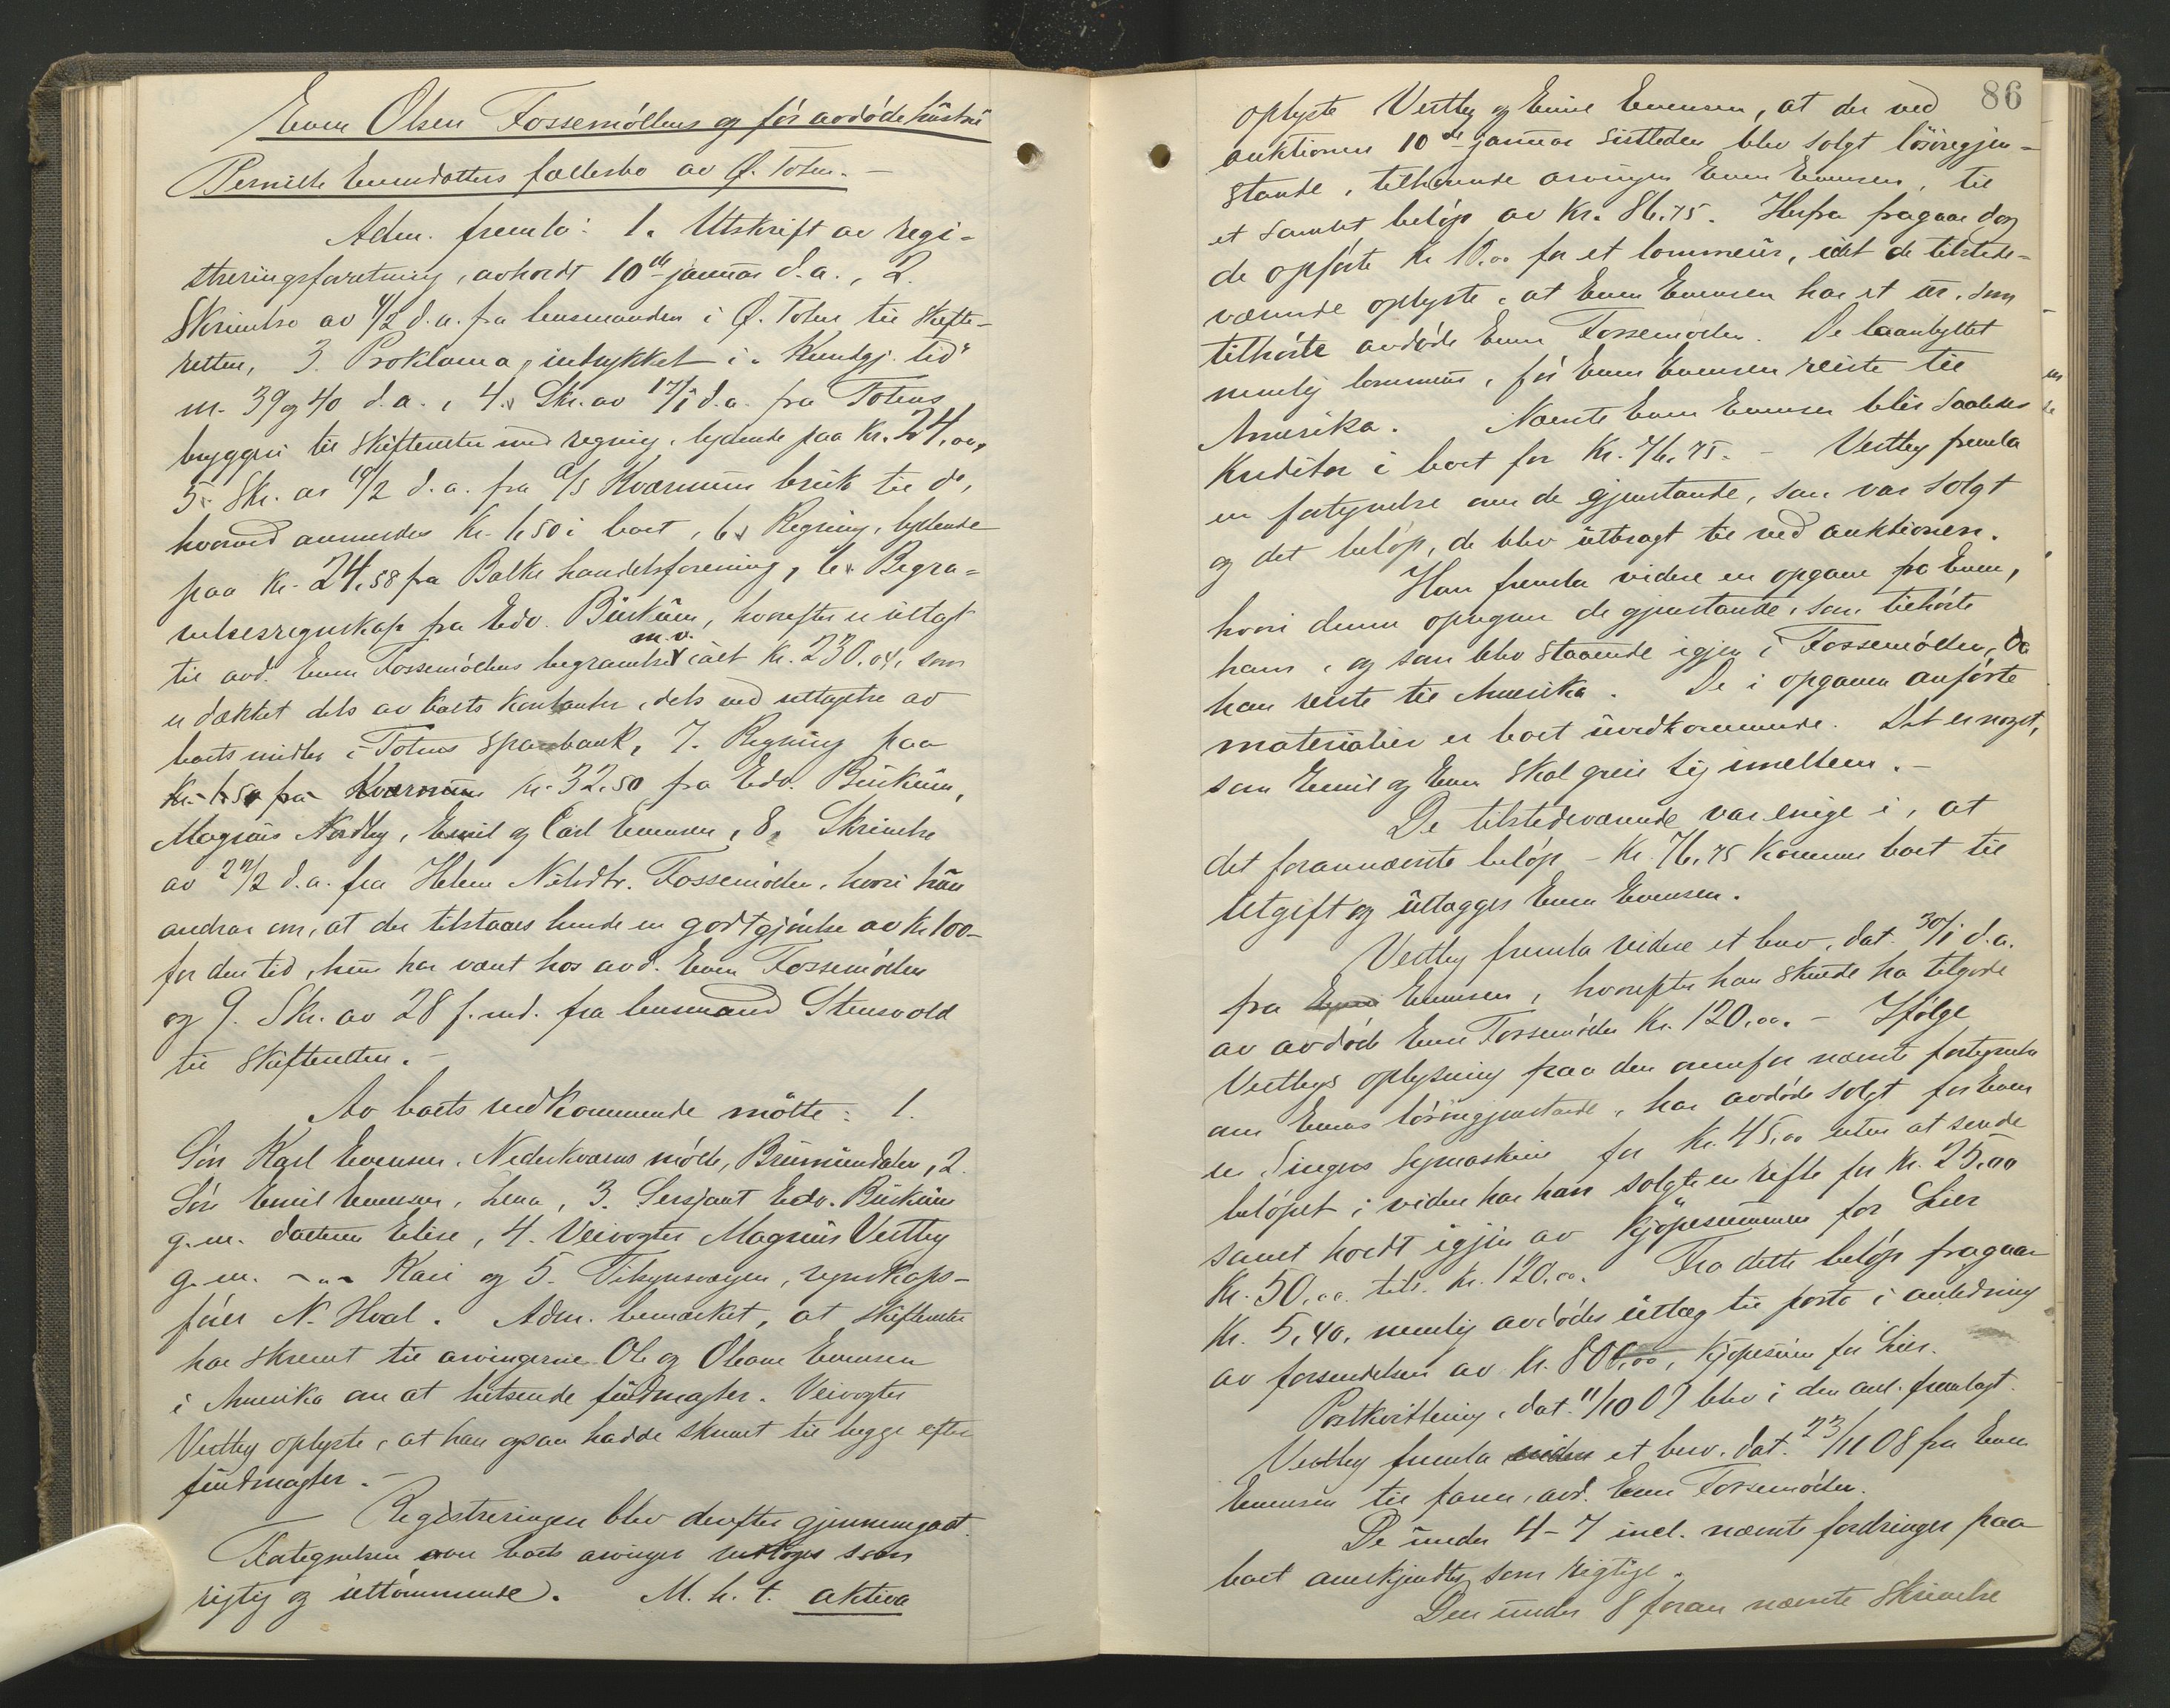 Even Olsen Fossemöllens og för avdöde hustru
Pernille Evensdatters fællesbo av Ø. Toten. –
Adm. fremla: 1. Utskrift av regi-
streringsforretning, avholdt 10de januar d.a., 2.
Skrivelse av 4/2 d.a. fra lensmanden i Ø. Toten til skifte-
retten, 3. Proklama, indrykket i "Kundgj. tid"
nr. 39 og 40 d.a., 4. Skr. av 17/1 d.a. fra Totens
bryggeri til skifteretten med regning, lydende paa Kr. 24,00,
5. Skr. av 10/2 d.a. fra A/S Kværnum bruk til do,
hvorved anmeldes Kr. 1,50 i boet, 6. Regning, lydende
paa Kr. 24,58 fra Balke handelsforening, 6. Begra-
velsesregnskap fra Edv. Burkum, hvorefter er utlagt
til avd. Even Fossemöllens begravelse m.v. ialt Kr. 230,04, som
er dækket dels av boets kontanter, dels ved uttagelse av
boets midler i Totens sparebank, 7. Regning paa
Kr. 1,50 fra Kværnum Kr. 32,50 fra Edv. Burkum,
Magnus Nordby, Emil og Carl Evensen, 8. Skrivelse
av 22/2 d.a. fra Helene Nilsdtr. Fossemöllen, hvori hun
andrar om, at der tilstaaes hende en godtgjörelse av Kr. 100-
for den tid, hun har vært hos avd. Even Fossemöllen
og 9. Skr. av 28 f. md. fra lensmand Stensvold
til skifteretten. –
Av boets vedkommende mötte: 1.
Sön Karl Evensen, Nederkværns mölle, Brumunddalen, 2.
Sön Emil Evensen, Lena, 3. Sersjant Edv. Burkum
g.m. datteren Elise, 4. Veivogter Magnus Vestby
g.m. -"- Kari og 5. Tilsynsvergen, regnskaps-
förer N. Hval. Adm. bemærket, at skifteretten
har skrevet til arvingerne Ole og Oleane Evensen
i Amerika om at hitsende fuldmagter. Veivogter
Vestby oplyste, at han ogsaa hadde skrevet til begge efter
fuldmagter. –
Registreringen blev derefter gjennemgaat.
Fortegnelsen over boets arvinger vedtoges som
rigtig og uttömmende. M. h. t. aktiva
86
oplyste Vestby og Emil Evensen, at der ved
auktionen 10de januar sistleden blev solgt lösöregjen-
stande, tilhörende arvingen Even Evensen, til
et samlet belöp av Kr. 86,75. Herfra fragaar dog
de opförte Kr. 10,00 for et lommeur, idet de tilstede-
værende oplyste, at Even Evensen har et ur, som
tilhörte avdöde Even Fossemöllen. De laanbyttet
nemlig lommeur, för Even Evensen reiste til
Amerika. Nævnte Even Evensen blir saaledes
Kreditor i boet for Kr. 76,75. – Vestby fremla
en fortegnelse over de gjenstande, som var solgt
og det belöp, de blev utbragt til ved auktionen.
Han fremla videre en opgave fra Even,
hvori denne opregner de gjenstande, som tilhörte
ham, og som blev staaende igjen i Fossemöllen, da
han reiste til Amerika. De i opgaven anförte
materialier er boet uvedkommende. Det er noget,
som Emil og Even skal greie sig imellem. –
De tilstedeværende var enige i, at
det forannævnte belöp – Kr. 76,75 kommer boet til
utgift og utlægges Even Evensen.
Vestby fremla videre et brev, dat. 30/1 d.a.
fra Evensen, hvorefter han skulde ha tilgode
av avdöde Even Fossemöllen Kr. 120,00. – Ifölge
Vestbys oplysning paa den ovenfor nævnte fortegnelse
over Evens lösöregjenstande, har avdöde solgt for Even
en Singers symaskin for Kr. 45,00 uten at sende
belöpet; videre har han solgt en rifle for Kr. 25,00
samt holdt igjen av kjöpesummen for Lier
Kr. 50,00 tils. Kr. 120,00. Fra dette belöp fragaar
Kr. 5,40, nemlig avdödes utlæg til porto i anledning
av forsendelsen av Kr. 800,00, kjöpesum for Lier.
Postkvittering, dat. 11/10 07 blev i den anl. fremlagt.
Vestby fremla videre et brev, dat. 23/11 08 fra Even
Evensen til faren, avd. Even Fossemöllen.
De under 4–7 incl. nævnte fordringer paa
boet anerkjendtes som rigtige.
Den under 8 foran nævnte skrivelse